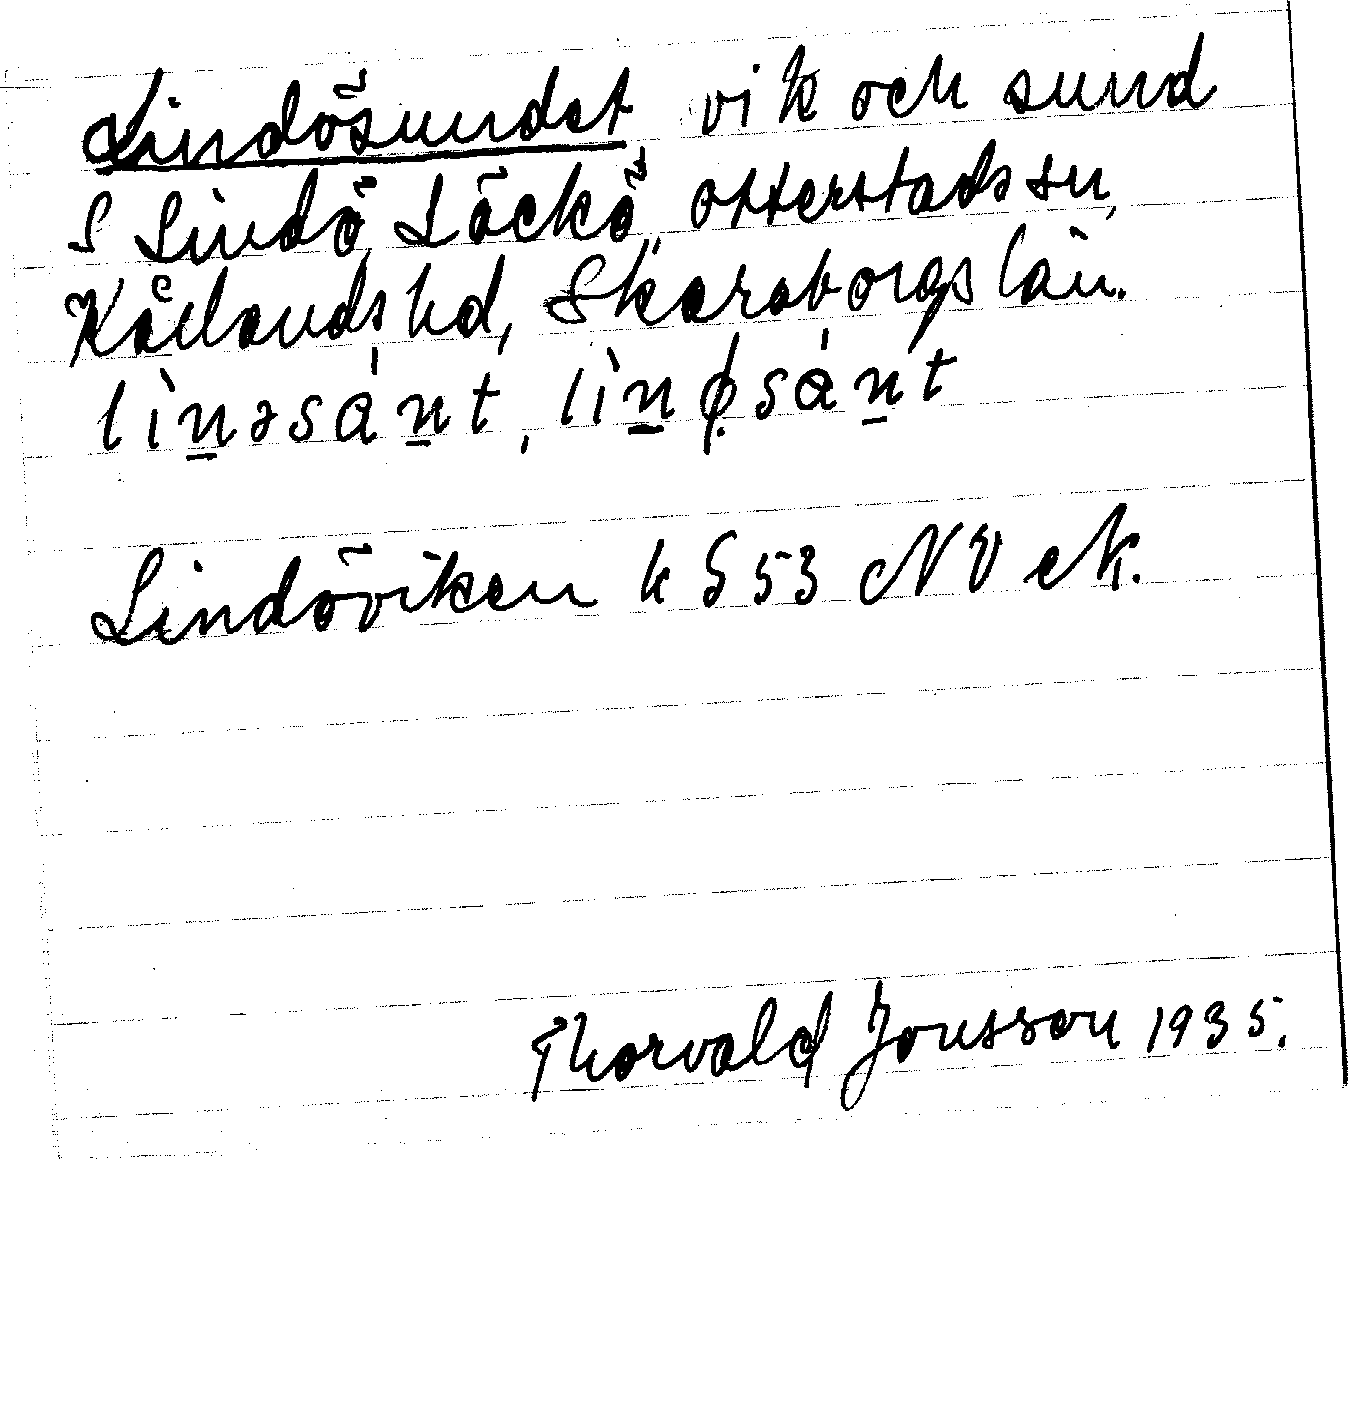 Lindösundet vik och sund
S Lindö, Läckö, Otterstads sn,
Kållands hd, Skaraborgs län.
lìn̠əsán̠t, lìn̠ɸsán̠t
Lindöviken k § 53 NV ek.
Thorvald Jonsson 1935.